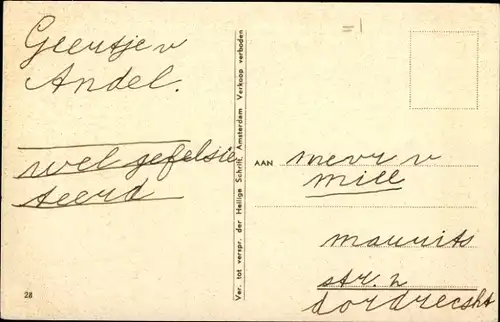 Geertje v
Andel.
wel gefelsie
teerd
28
Ver. tot verspr. der Heilige Schrift, Amsterdam Verkoop verboden
=1
AAN mevr v
Mill
maurits
str. 2
dordrescht